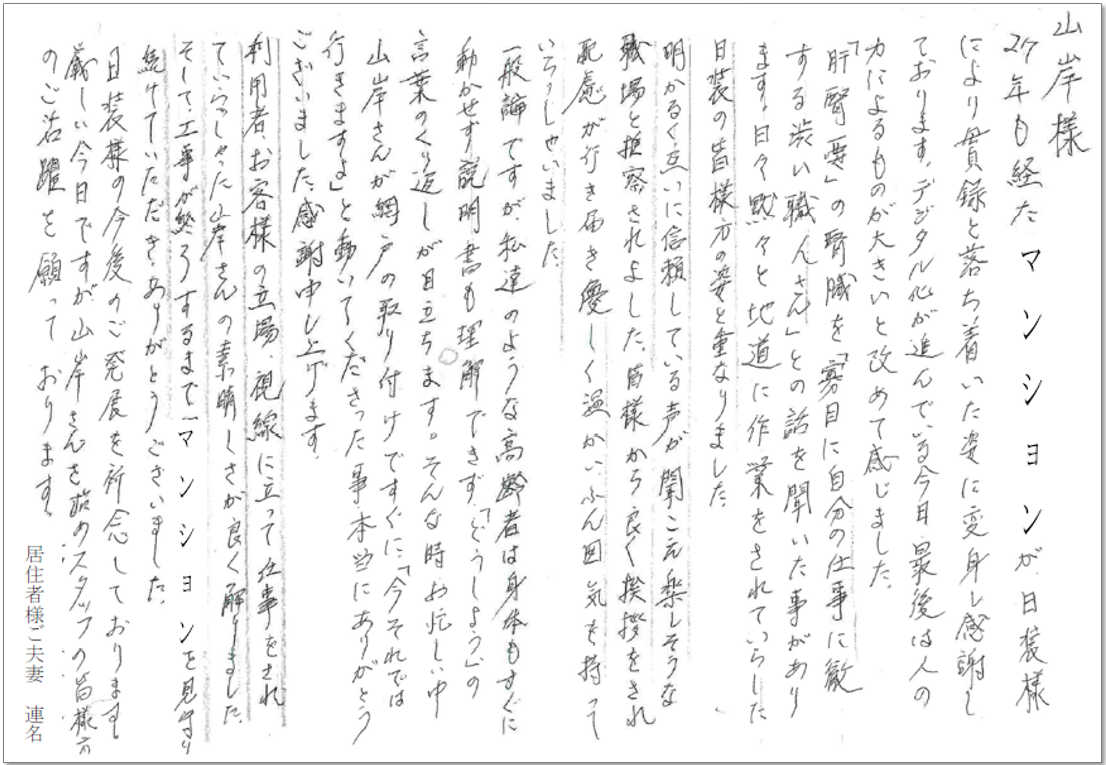 山岸様
27年も経たマンションが、日装様
により貫録と落ち着いた姿に変身し感謝し
ております。デジタル化が進んでいる今日、最後は人の
力によるものが大きいと改めて感じました。
「肝腎要」の腎臓を「寡目に自分の仕事に徹
する渋い職人さん」との話を聞いた事があり
ます。日々黙々と地道に作業をされていらした
日装の皆様方の姿と重なりました。
明かるく互いに信頼している声が聞こえ楽しそうな
職場と推察されました。皆様から良く挨拶をされ
配慮が行き届き優しく温かいふん囲気を持って
いらっしゃいました。
一般論ですが、私達のような高齢者は身体もすぐに
動かせず説明書も理解できず、「どうしよう」の
言葉のくり返しが目立ちます。そんな時お忙しい中
山岸さんが網戸の取り付けですぐに、「今それでは
行きますよ」と動いてくださった事、本当にありがとう
ございました。感謝申し上げます。
利用者、お客様の立場、視線に立って仕事をされ
ていらっしゃった山岸さんの素晴しさが良く解りました。
そして工事が終ろうするまで、マンションを見守り
続けていただきありがとうございました。
日装様の今後のご発展を祈念しております。
厳しい今日ですが山岸さんを始めスタッフの皆様方
のご活躍を願っております。
居住者様ご夫妻　連名